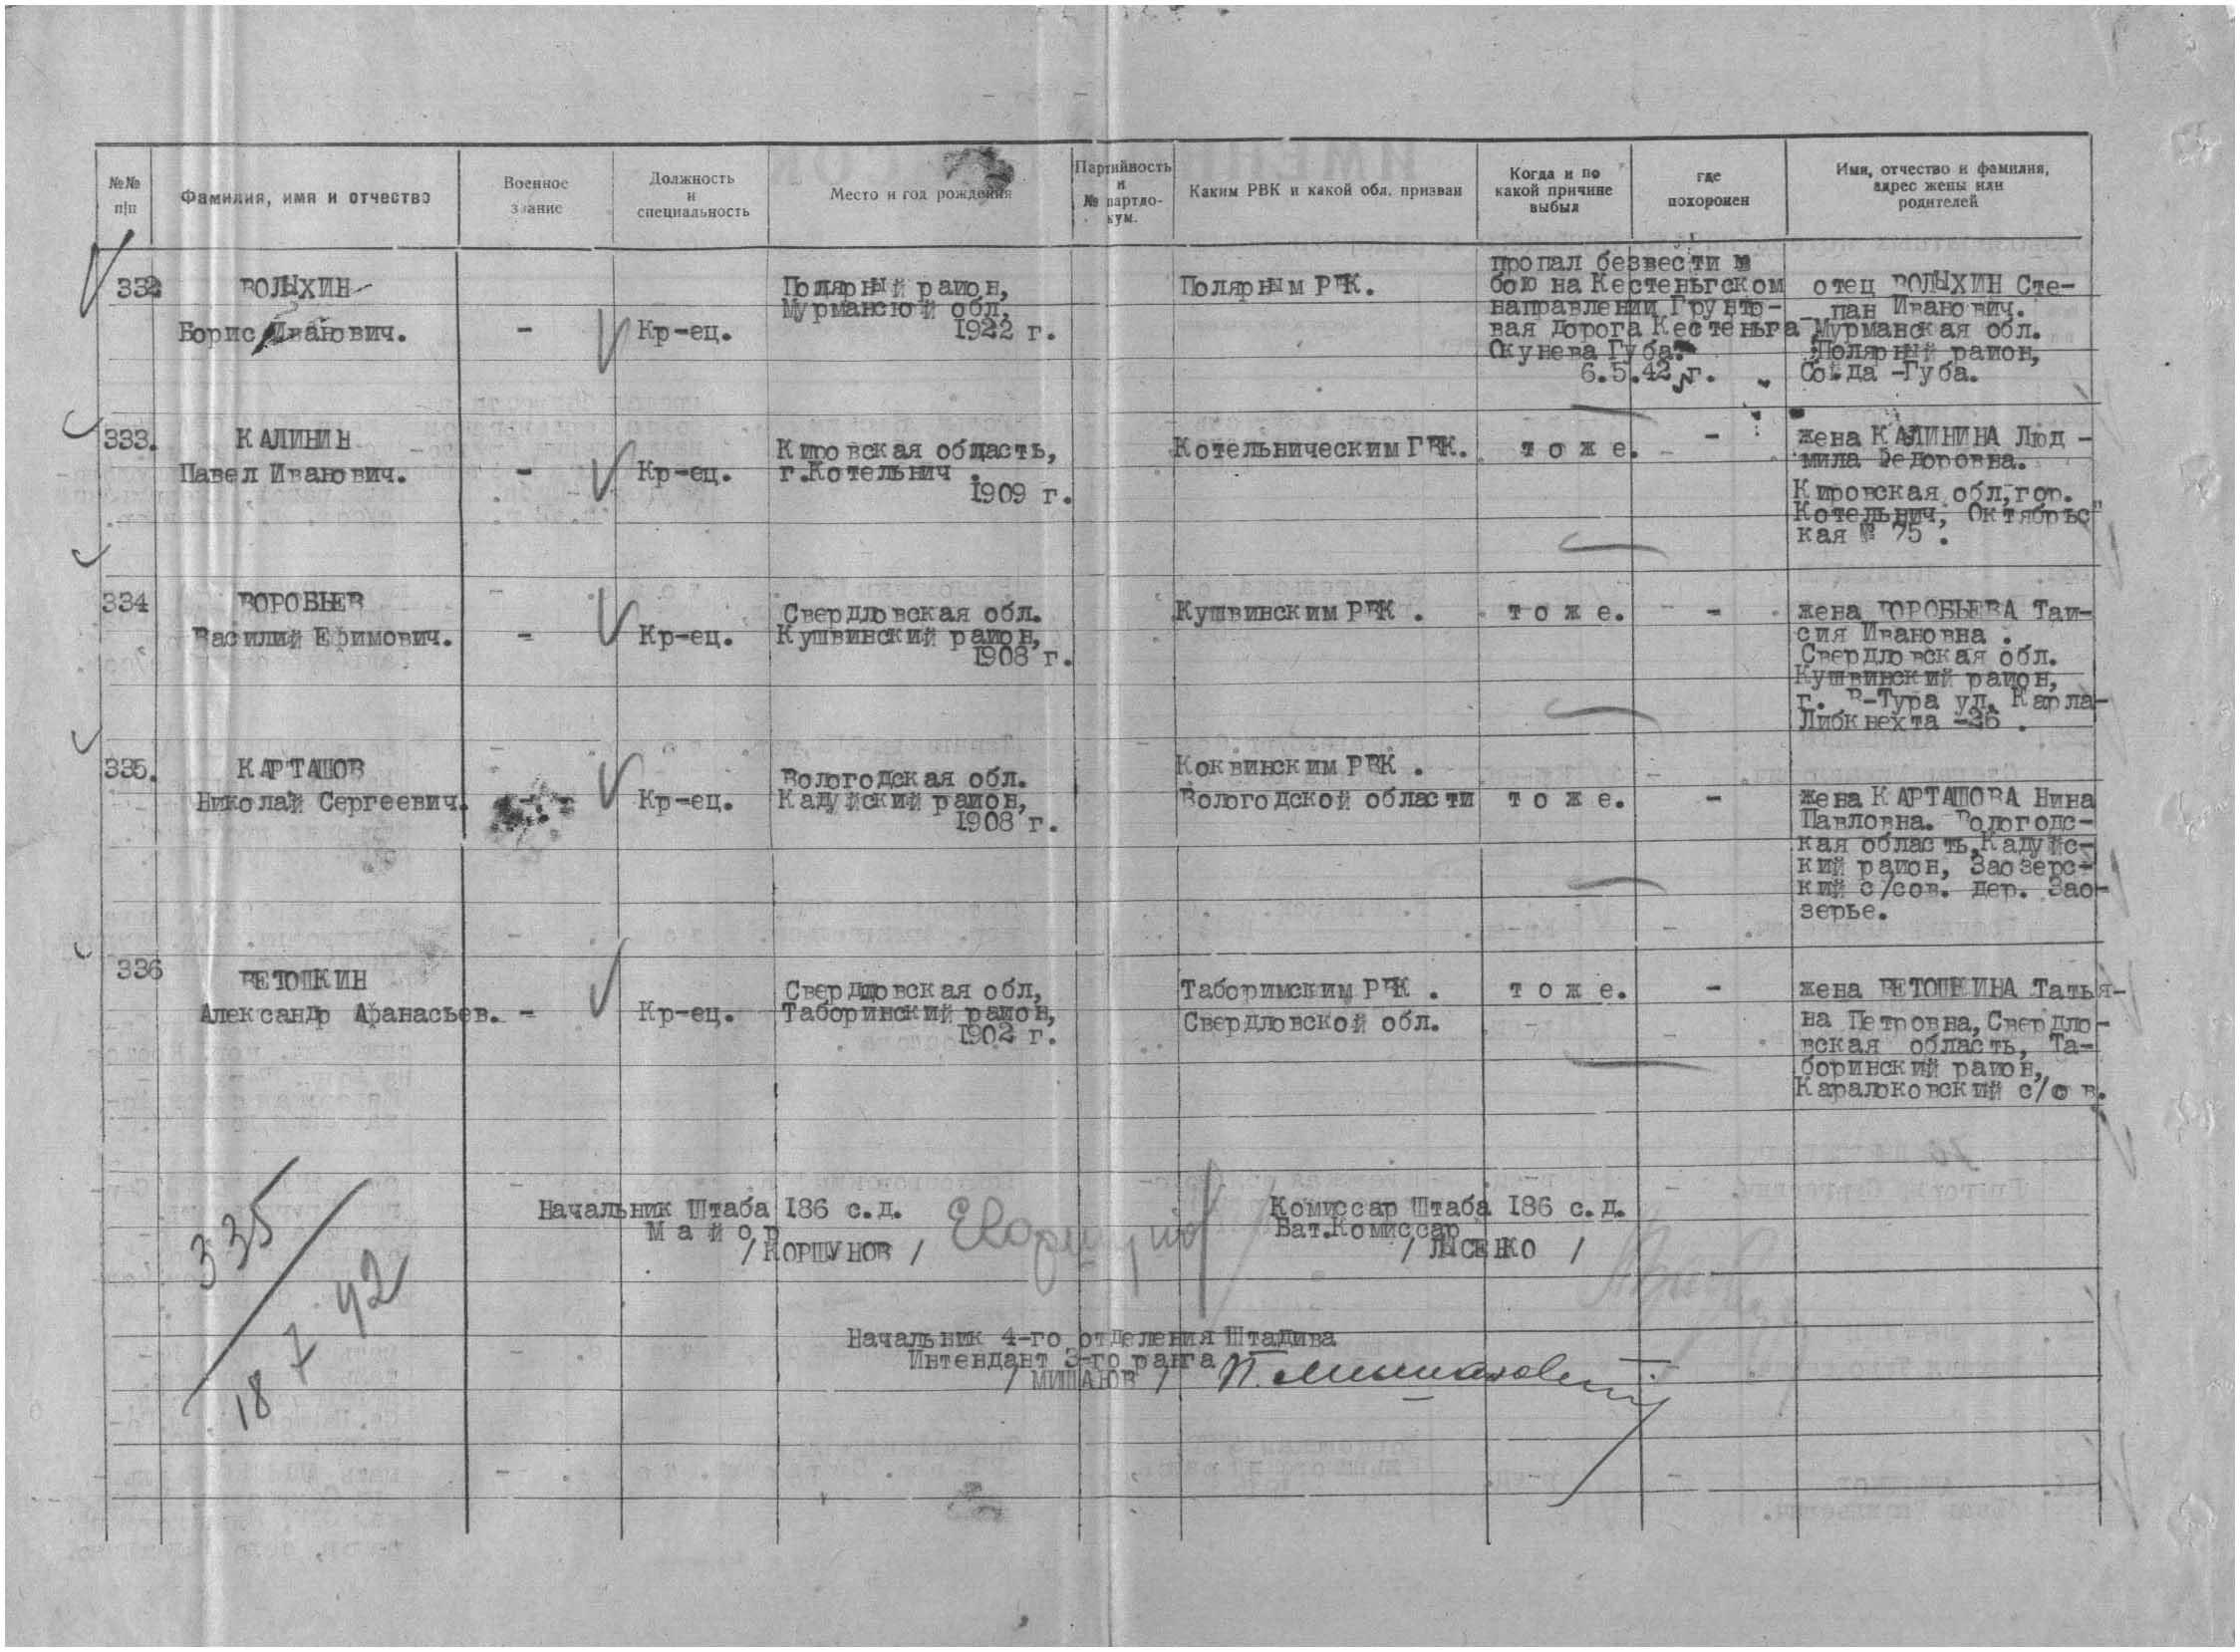 №№ п/п
Фамилия, имя и отчество
Военное звание
Должность и специальность
Место и год рождения
Партийность и № партдокум.
Каким РВК и какой обл. призван
Когда и по какой причине выбыл
где похоронен
Имя, отчество и фамилия, адрес жены или родителей
332
ВОЛЫХИН
Борис Иванович.
-
Кр-ец.
Полярный район,
Мурманской обл,
1922 г.
Полярным РВК.
пропал безвести в
бою на Кестеньгском
направлении Грунто-
вая дорога Кестеньга
Окунева Губа.
6.5.42 г.
отец ВОЛЫХИН Сте-
пан Иванович.
Мурманская обл.
Полярный район,
Губа.
333.
КАЛИНИН
Павел Иванович.
-
Кр-ец.
Кировская область,
г.Котельнич .
1909 г.
Котельническим ГВК.
т о ж е.
-
жена КАЛИНИНА Люд -
мила Федоровна.
Кировская обл,гор.
Котельнич, Октябрьс"
кая № 75 .
334
ВОРОБЬЕВ
Василий Ефимович.
-
Кр-ец.
Свердловская обл.
Кушвинский район,
1908 г.
Кушвинским РВК .
т о ж е.
-
жена ВОРОБЬЕВА Таи-
сия Ивановна .
Свердловская обл.
Кушвинский район,
г. В-Тура ул. Карла-
Либкнехта -36 .
335.
КАРТАШОВ
Николай Сергеевич.
Кр-ец.
Вологодская обл.
Кадуйский район,
1908 г.
Коквинским РВК .
Вологодской области
т о ж е.
-
жена КАРТАШОВА Нина
Павловна. Вологодс-
кая область,Кадуйс-
кий район, Заозерс-
кий с/сов. дер. Зао-
зерье.
336
ВЕТОШКИН
Александр Афанасьев.
-
Кр-ец.
Свердловская обл,
Таборинский район,
1902 г.
Таборимским РВК .
Свердловской обл.
т о ж е.
-
жена ВЕТОШКИНА Татья-
на Петровна, Свердло-
вская область, Та-
боринский район,
Каралоковский с/сов.
Начальник Штаба 186 с.д.
Майор
/ КОРШУНОВ /
Комиссар Штаба 186 с.д.
Бат.Комиссар
/ ЛЫСЕНКО /
335
18 7 42
Начальник 4-го отделения Штадива
Интендант 3-го ранга